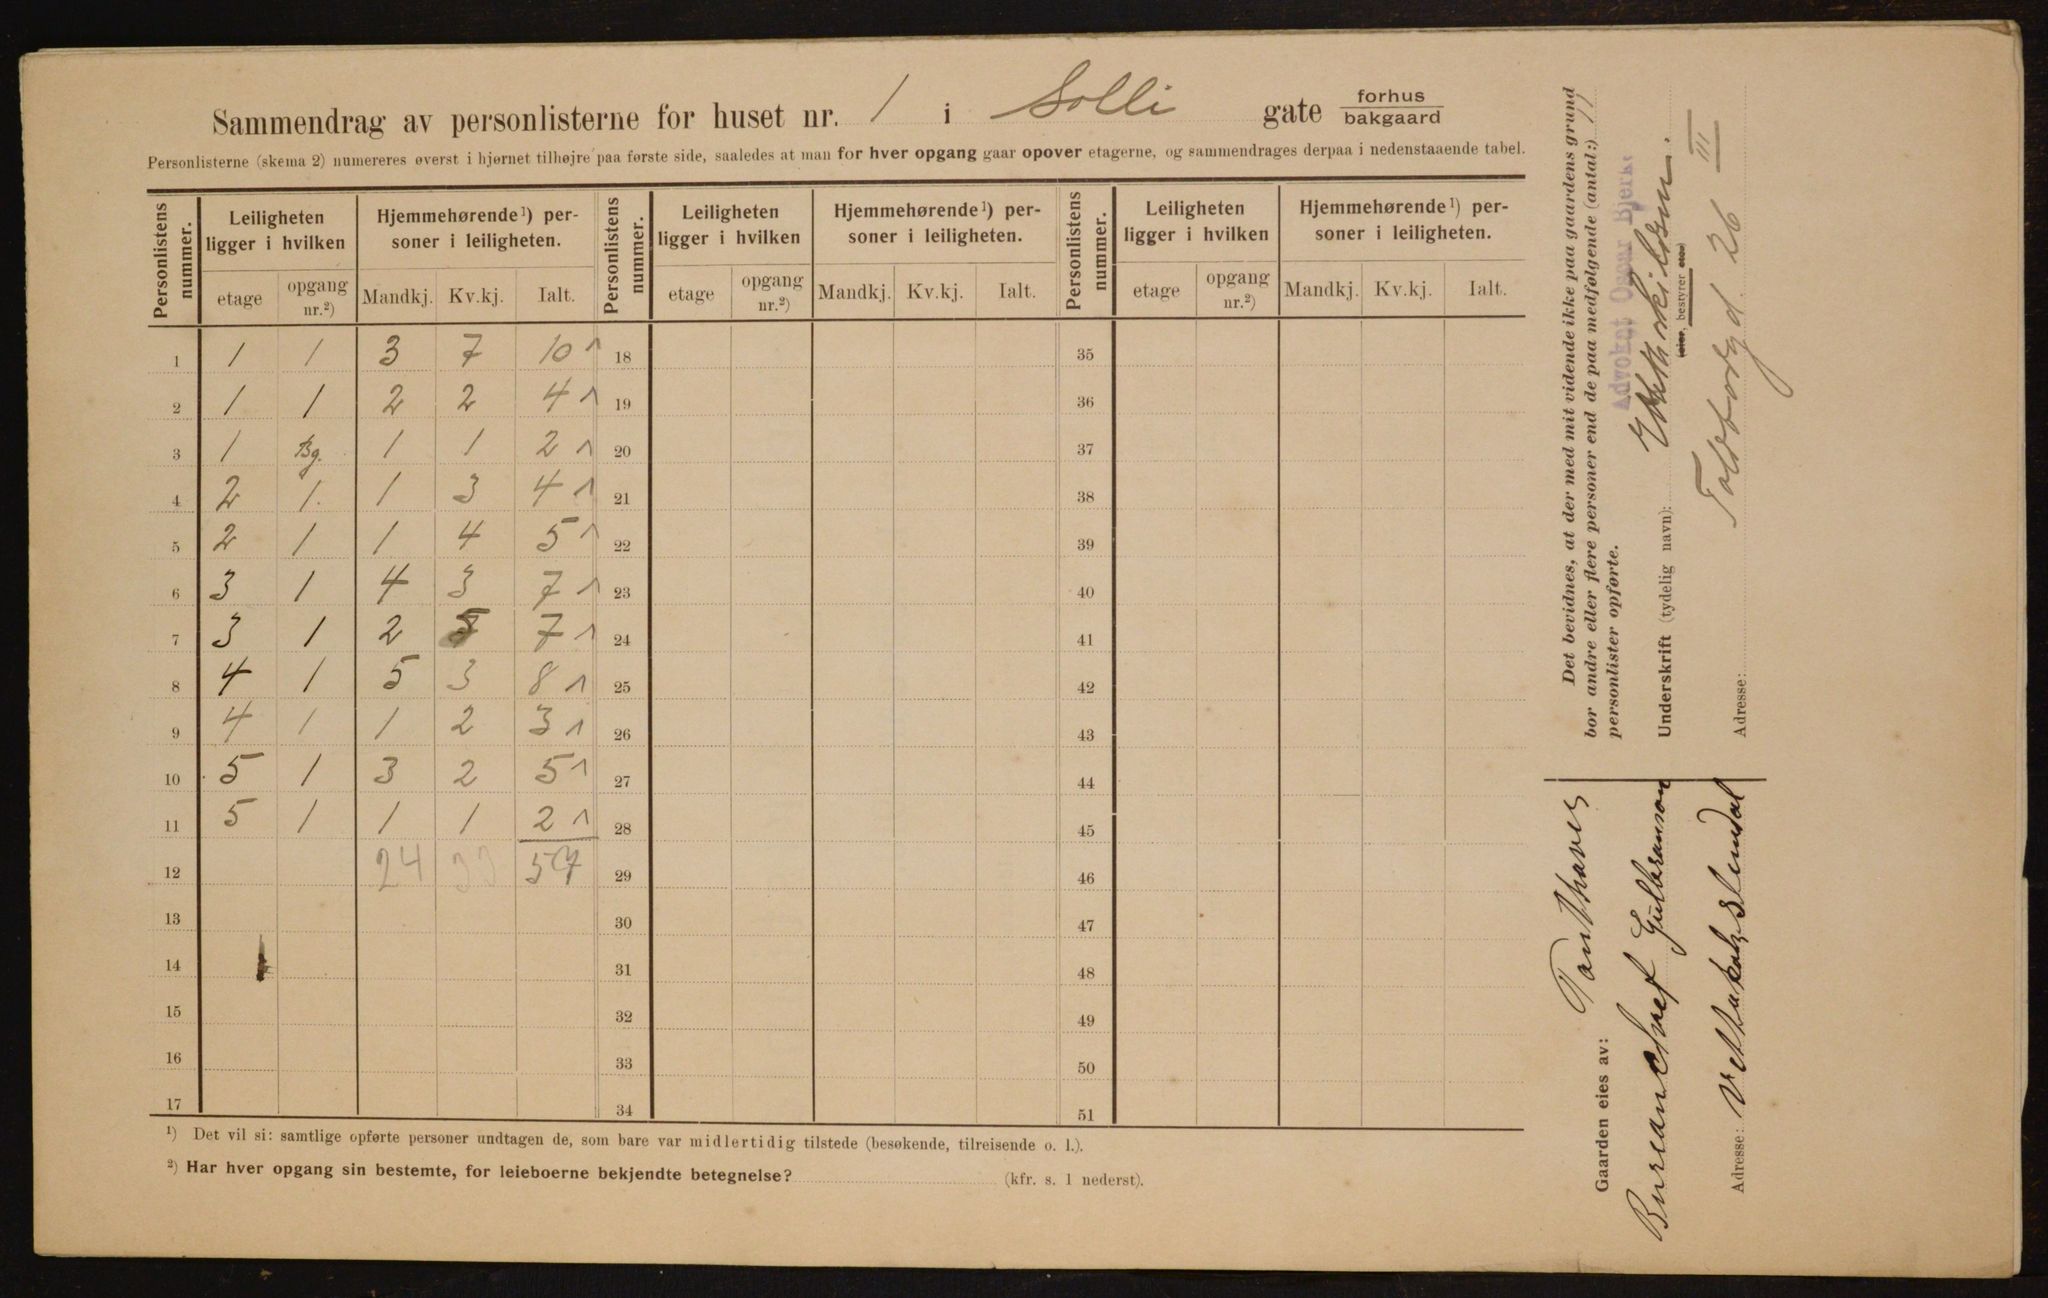 Sammendrag av personlisterne for huset nr. 1 i Solli gate forhus
bakgaard
Personlisterne (skema 2) numereres øverst i hjørnet tilhøjre paa første side, saaledes at man for hver opgang gaar opover etagerne, og sammendrages derpaa i nedenstaaende tabel.
Personlistens nummer. Leiligheten ligger i hvilken Hjemmehørende¹) personer i leiligheten. Personlistens nummer. Leiligheten ligger i hvilken Hjemmehørende¹) personer i leiligheten. Personlistens nummer. Leiligheten ligger i hvilken Hjemmehørende¹) personer i leiligheten.
etage opgang nr.²) Mandkj. Kv.kj. Ialt. etage opgang nr.²) Mandkj. Kv.kj. Ialt. etage opgang nr.²) Mandkj. Kv.kj. Ialt.
1 1 1 3 7 10 1 18 35
2 1 1 2 2 4 1 19 36
3 1 Bg. 1 1 2 1 20 37
4 2 1. 1 3 4 1 21 38
5 2 1 1 4 5 1 22 39
6 3 1 4 3 7 1 23 40
7 3 1 2 5 7 1 24 41
8 4 1 5 3 8 1 25 42
9 4 1 1 2 3 1 26 43
10 5 1 3 2 5 1 27 44
11 5 1 1 1 2 1 28 45
12 24 33 57 29 46
13 30 47
14 31 48
15 32 49
16 33 50
17 34 51
¹) Det vil si: samtlige opførte personer undtagen de, som bare var midlertidig tilstede (besøkende, tilreisende o. l.).
²) Har hver opgang sin bestemte, for leieboerne bekjendte betegnelse? (kfr. s. 1 nederst).
Det bevidnes, at der med mit vidende ikke paa gaardens grund
bor andre eller flere personer end de paa medfølgende (antal:) 11
personlister opførte.
Advokat Bjerk.
Underskrift (tydelig navn):
eier, bestyrer
Toldbodgd. 26 III
Adresse:
Gaarden eies av:
Bureauchef Gulbranson
Adresse: